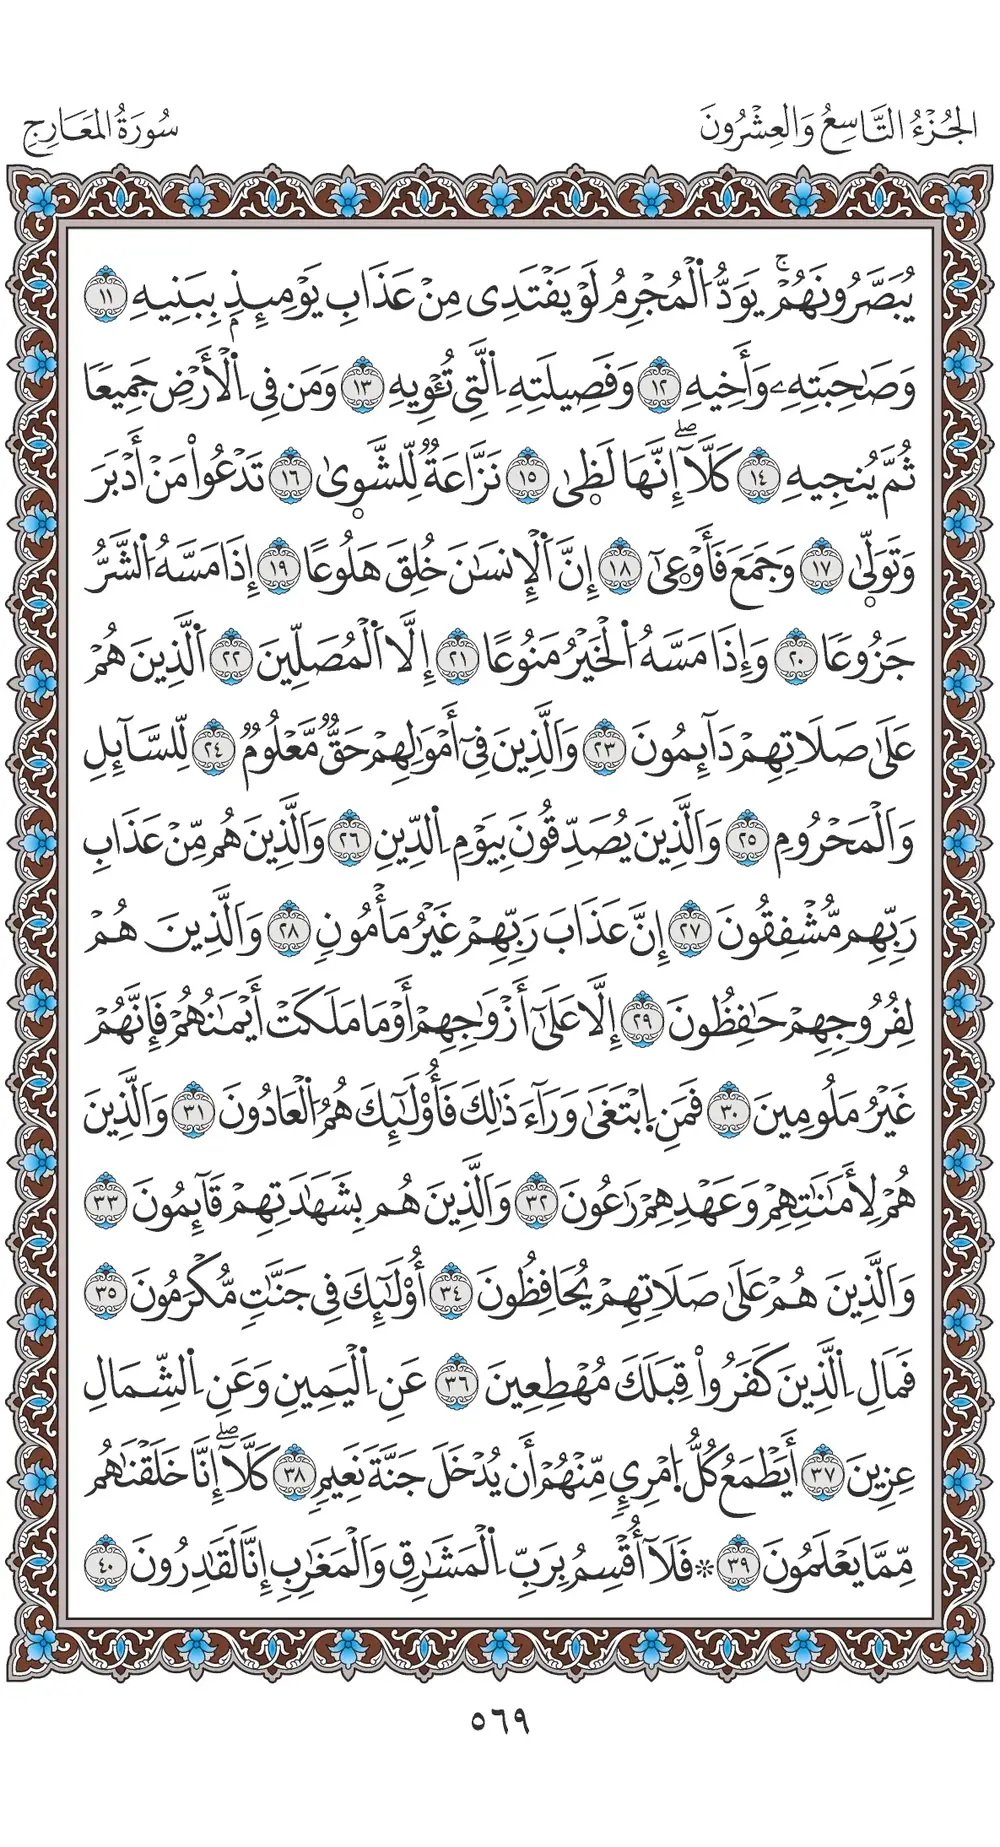 الجُزْءُ التَّاسِعُ وَالعِشْرُونَ
سُورَةُ المَعَارِجِ
يُبَصَّرُونَهُمْۚ يَوَدُّ اُ۬لْمُجْرِمُ لَوْ يَفْتَدِى مِنْ عَذَابِ يَوْمِئِذِۢ بِبَنِيهِ ١١
وَصَٰحِبَتِهِۦ وَأَخِيهِ ١٢ وَفَصِيلَتِهِ اِ۬لَّتِى تُـْٔوِيهِ ١٣ وَمَن فِى اِ۬لْأَرْضِ جَمِيعًا
ثُمَّ يُنجِيهِ ١٤ كَلَّآۖ إِنَّهَا لَظ۪ىٰ ١٥ نَزَّاعَةٌ لِّلشَّو۪ىٰ ١٦ تَدْعُواْ مَنْ أَدْبَرَ
وَتَوَلّ۪ىٰ ١٧ وَجَمَعَ فَأَوْع۪ىٰٓ ١٨ إِنَّ اَ۬لْإِنسَٰنَ خُلِقَ هَلُوعًا ١٩ إِذَا مَسَّهُ اُ۬لشَّرُّ
جَزُوعًا ٢٠ وَإِذَا مَسَّهُ اُ۬لْخَيْرُ مَنُوعًا ٢١ إِلَّا اَ۬لْمُصَلِّينَ ٢٢ اَ۬لَّذِينَ هُمْ
عَلَىٰ صَلَاتِهِمْ دَآئِمُونَ ٢٣ وَالَّذِينَ فِىٓ أَمْوَٰلِهِمْ حَقٌّ مَّعْلُومٌ ٢٤ لِّلسَّآئِلِ
وَالْمَحْرُومِ ٢٥ وَالَّذِينَ يُصَدِّقُونَ بِيَوْمِ اِ۬لدِّينِ ٢٦ وَالَّذِينَ هُم مِّنْ عَذَابِ
رَبِّهِم مُّشْفِقُونَ ٢٧ إِنَّ عَذَابَ رَبِّهِمْ غَيْرُ مَأْمُونٍ ٢٨ وَالَّذِينَ هُمْ
لِفُرُوجِهِمْ حَٰفِظُونَ ٢٩ إِلَّا عَلَىٰٓ أَزْوَٰجِهِمْ أَوْ مَا مَلَكَتْ أَيْمَٰنُهُمْ فَإِنَّهُمْ
غَيْرُ مَلُومِينَ ٣٠ فَمَنِ اِ۪بْتَغَىٰ وَرَآءَ ذَٰلِكَ فَأُوْلَٰٓئِكَ هُمُ اُ۬لْعَادُونَ ٣١ وَالَّذِينَ
هُمْ لِأَمَٰنَٰتِهِمْ وَعَهْدِهِمْ رَٰعُونَ ٣٢ وَالَّذِينَ هُم بِشَهَٰدَتِهِمْ قَآئِمُونَ ٣٣
وَالَّذِينَ هُمْ عَلَىٰ صَلَاتِهِمْ يُحَافِظُونَ ٣٤ أُوْلَٰٓئِكَ فِى جَنَّٰتٍ مُّكْرَمُونَ ٣٥
فَمَالِ اِ۬لَّذِينَ كَفَرُواْ قِبَلَكَ مُهْطِعِينَ ٣٦ عَنِ اِ۬لْيَمِينِ وَعَنِ اِ۬لشِّمَالِ
عِزِينَ ٣٧ أَيَطْمَعُ كُلُّ اُ۪مْرِيٍٕ مِّنْهُمْ أَن يُدْخَلَ جَنَّةَ نَعِيمٍ ٣٨ كَلَّآۖ إِنَّا خَلَقْنَٰهُم
مِّمَّا يَعْلَمُونَ ٣٩ * فَلَآ أُقْسِمُ بِرَبِّ اِ۬لْمَشَٰرِقِ وَالْمَغَٰرِبِ إِنَّا لَقَٰدِرُونَ ٤٠
٥٦٩